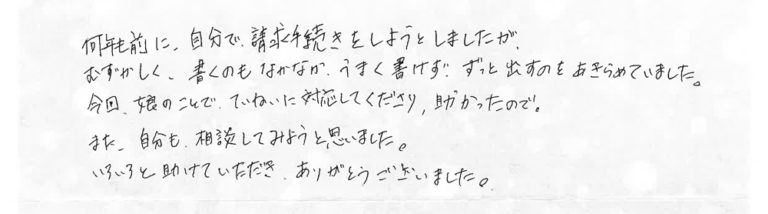 何年も前に、自分で、請求手続きをしようとしましたが、
むずかしく、書くのもなかなか、うまく書けず、ずっと出すのをあきらめていました。
今回、娘のことで、ていねいに対応してくださり、助かったので。
また、自分も、相談してみようと思いました。
いろいろと助けていただき、ありがとうございました。